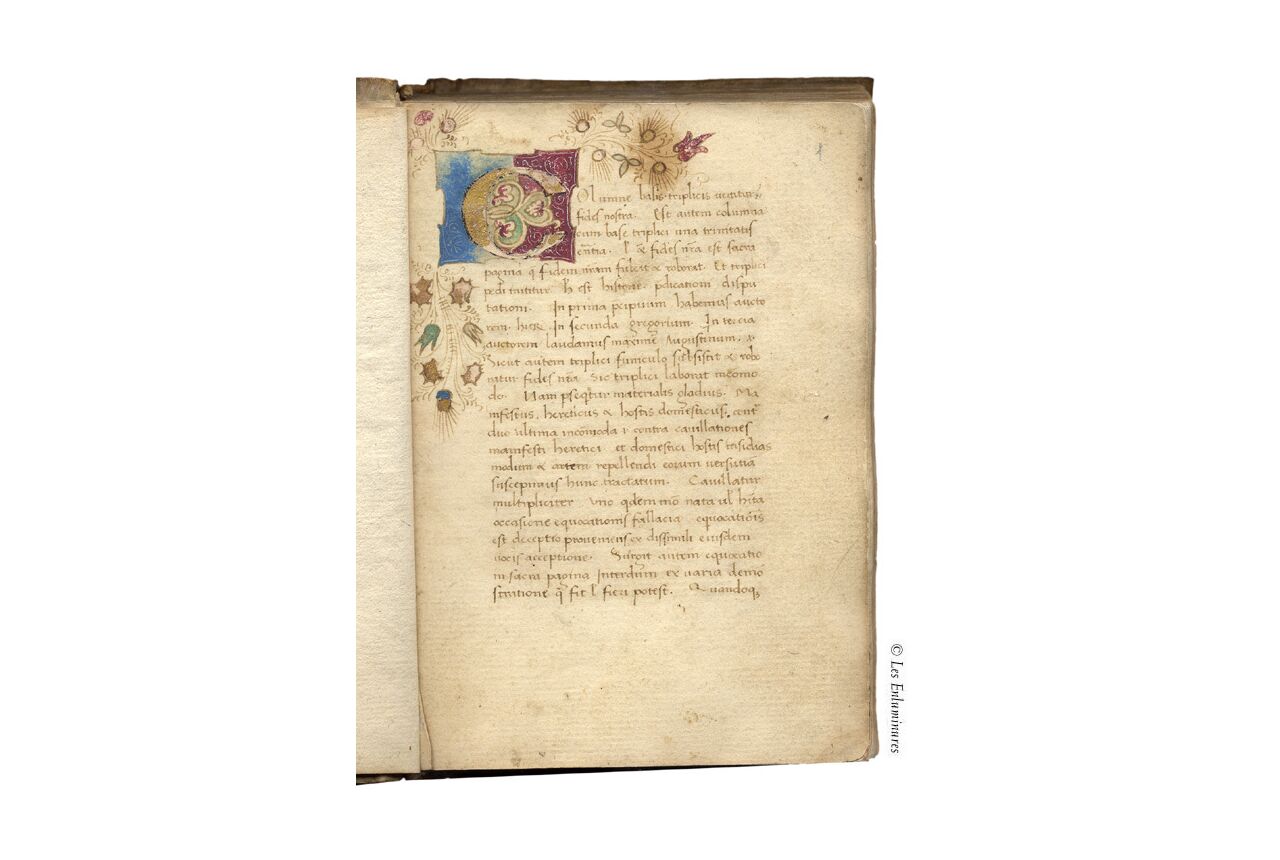 Olumne basis triplicis innititur
fides nostra. Est autem columna
cum base triplici una trinitatis
eēntia. l & fides nr̄a est sacra
pagina q̄ fidem nr̄am fulcit & roborat. Et triplici
pedi innititur. h̄ est historie p̄dicationi dispu
tationi. In prima p̄cipuum habemus aucto
rem. hier̄. In secunda gregorium. In tercia
auctorem laudamus maximē Augustinum.
Sicut autem triplici funiculo subsistit & robo
ratur fides nr̄a sic triplici laborat incōmo
do. Nam pseq̄tur materialis gladius. Ma
nifestus, hereticus & hostis domesticus. cont̄
duo ultima incōmoda & contra cauillationes
manifesti heretici et domestici hostis insidias
modum & artem repellendi eorum uersutiā
suscepimus hunc tractatum. Cauillatur
multipliciter uno q̄dem mō nata ul̄ hīta
occasione equocationis fallacia equocatiōis
est deceptio proueniens ex dissimili eiusdem
uocis acceptione. Surgit autem equocatio
in sacra pagina Interdum ex uaria demō
stratione q̄ fit l fieri potest. Quandoq;
© Les Enluminures